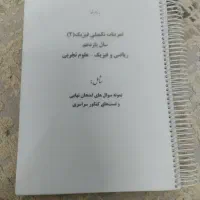 تمرینات تکمیلی فیزیک (۲)
سال یازدهم
ریاضی و فیزیک - علوم تجربی
شامل:
نمونه سوال های امتحان نهایی
و تست‌های کنکور سراسری